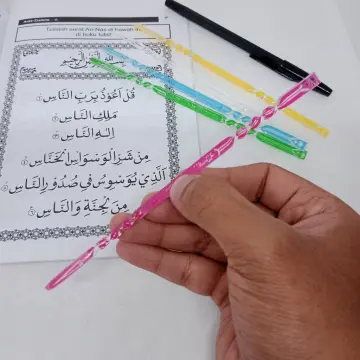 Tulislah surat An-Nas di bawah ini
di buku tulis!
بِسْمِ اللّٰهِ الرَّحْمٰنِ الرَّحِيْمِ
قُلْ اَعُوْذُ بِرَبِّ النَّاسِ
مَلِكِ النَّاسِ
اِلٰهِ النَّاسِ
مِنْ شَرِّ الْوَسْوَاسِ الْخَنَّاسِ
الَّذِيْ يُوَسْوِسُ فِيْ صُدُوْرِ النَّاسِ
مِنَ الْجِنَّةِ وَالنَّاسِ